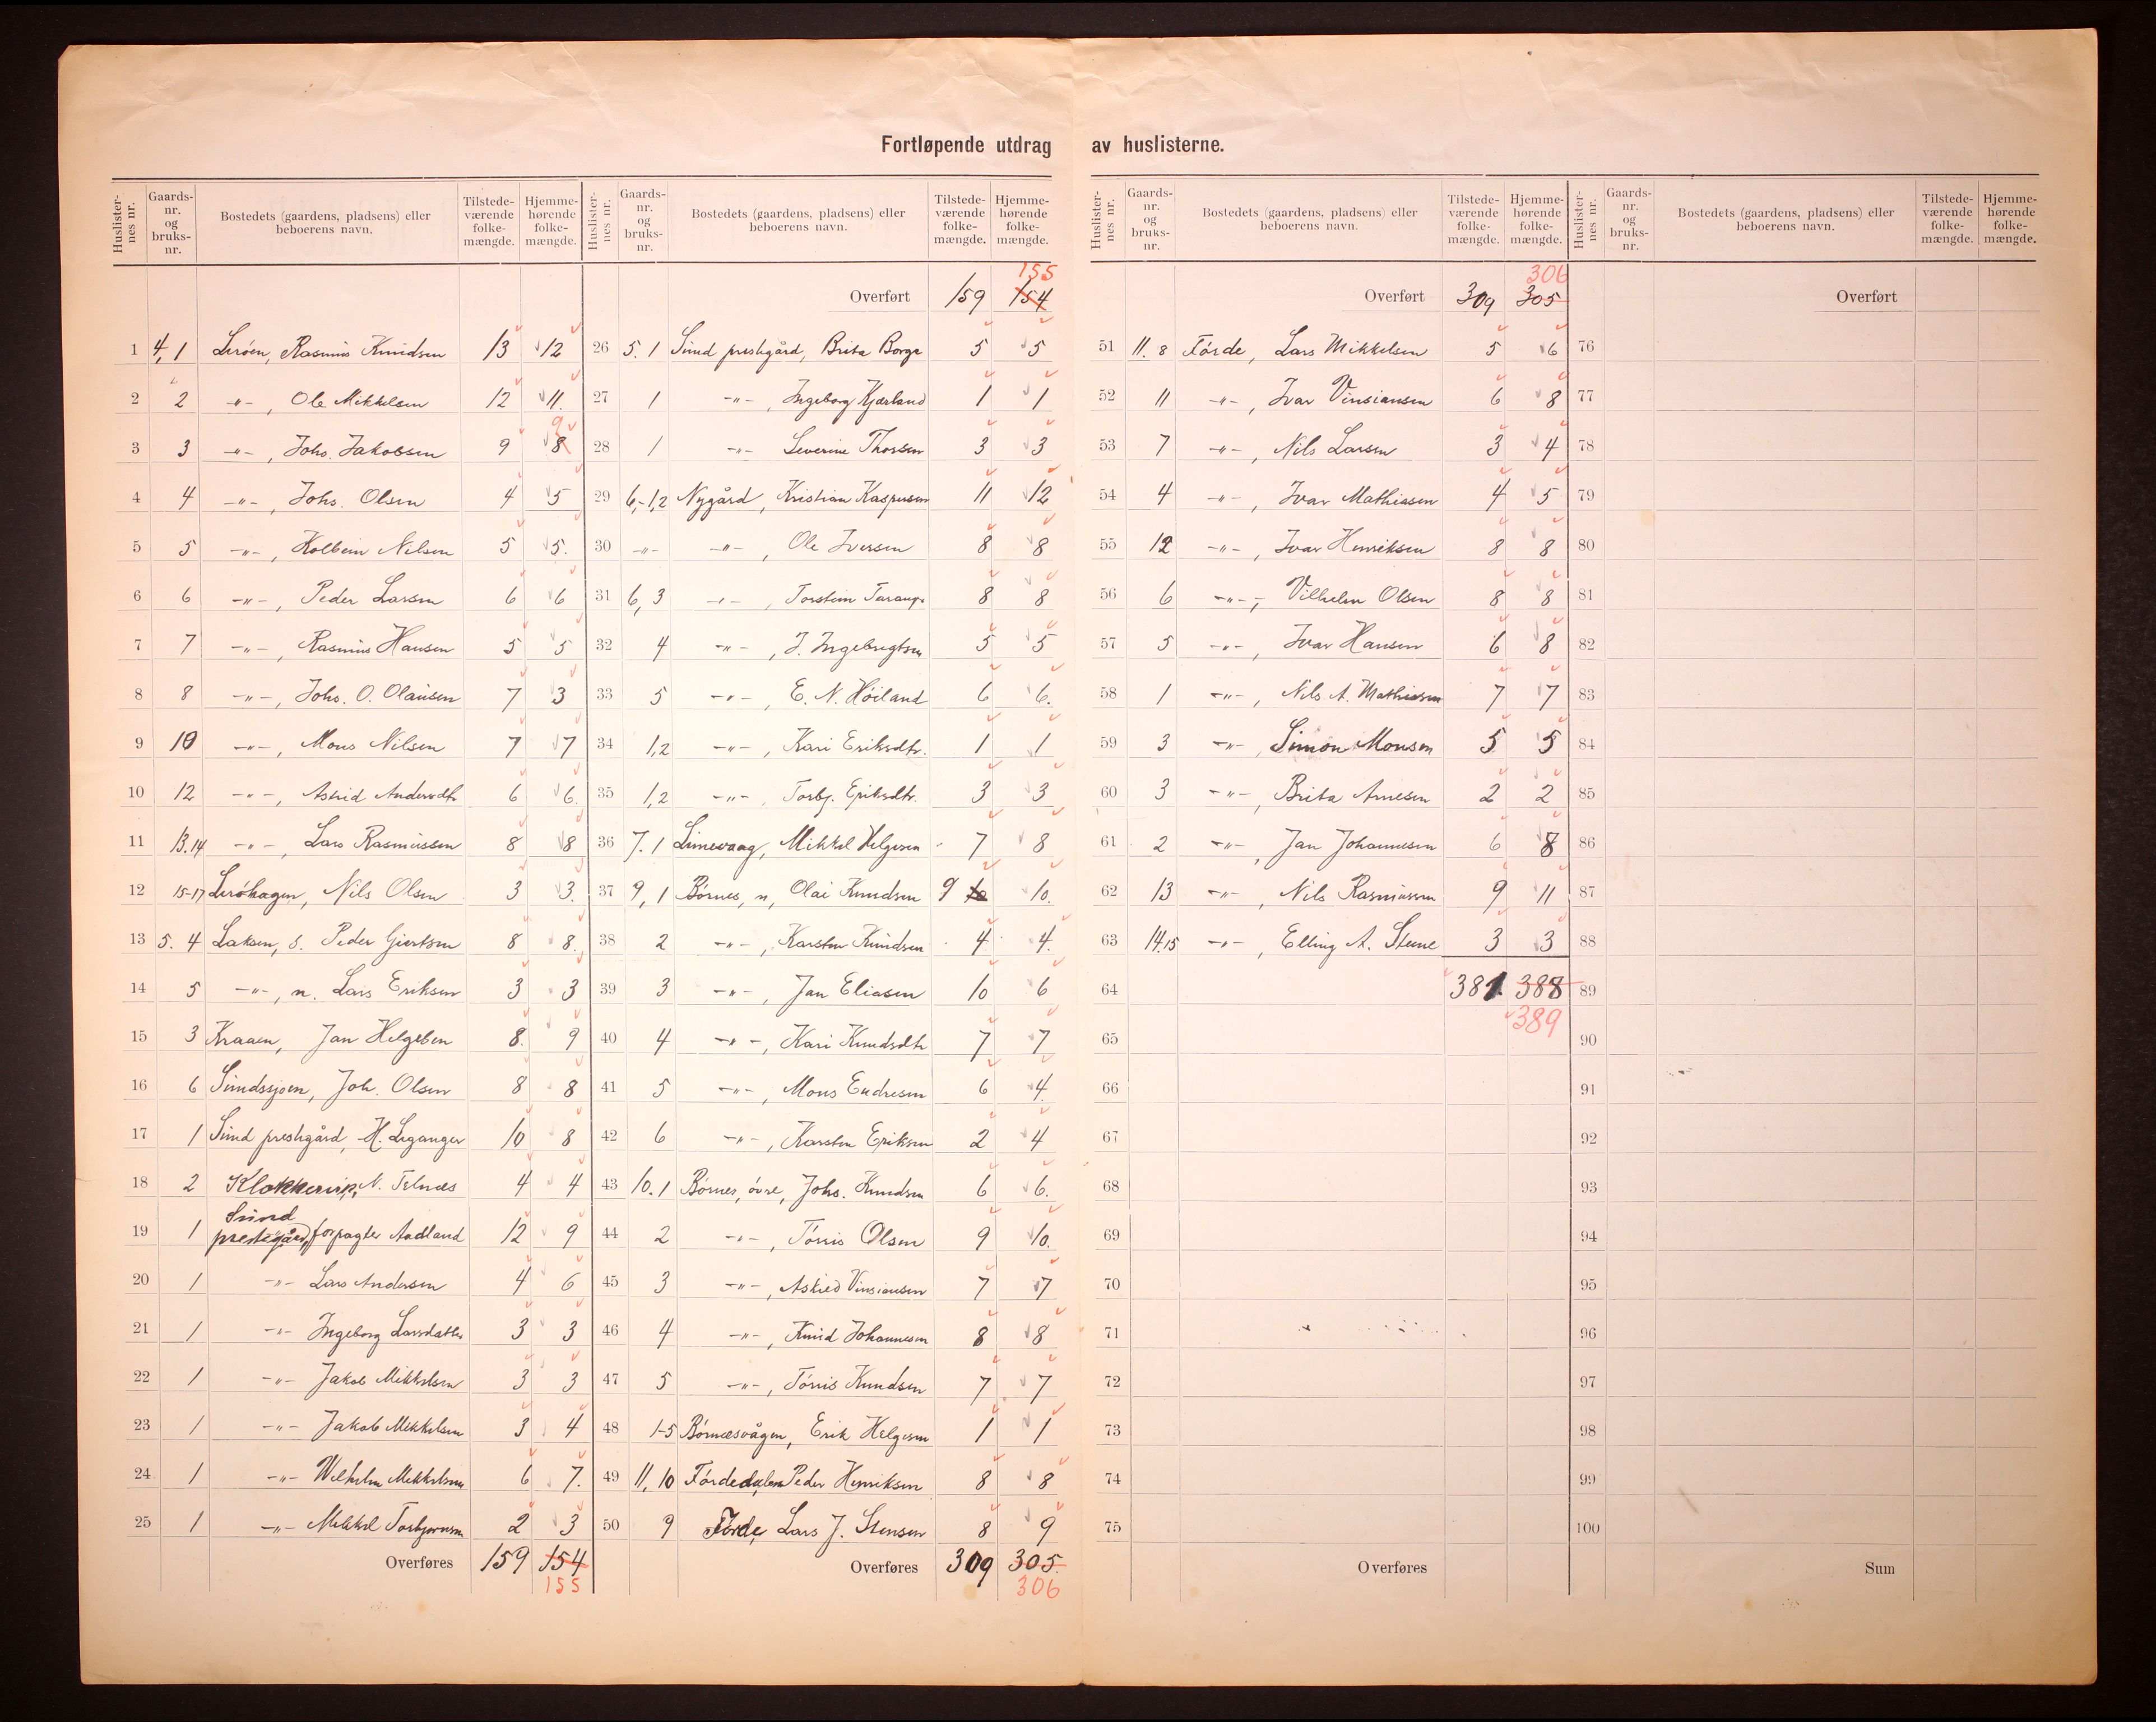 Fortløpende utdrag av huslisterne.
Huslisternes nr. Gaardsnr. og bruksnr. Bostedets (gaardens, pladsens) eller beboerens navn. Tilstedeværende folkemængde. Hjemmehørende folkemængde.
1 4,1 Lerøen, Rasmus Knudsen 13 12
2 2 -"-, Ole Mikkelsen 12 11.
3 3 -"-, Johs. Jakobsen 9 8 9
4 4 -"-, Johs. Olsen 4 5
5 5 -"-, Kolbein Nilsen 5 5.
6 6 -"-, Peder Larsen 6 6
7 7 -"-, Rasmus Hansen 5 5
8 8 -"-, Johs. O. Olausen 7 3
9 10 -"-, Mons Nilsen 7 7
10 12 -"-, Astrid Andersdtr 6 6.
11 13.14 -"-, Lars Rasmussen 8 8
12 15-17 Lerøhagen, Nils Olsen 3 3.
13 5. 4 Laksen, s. Peder Giertsen 8 8.
14 5 -"-, n. Lars Eriksen 3 3
15 3 Kraaen, Jan Helgesen 8. 9
16 6 Sundssjøen, Joh. Olsen 8 8
17 1 Sund prestegård, H. Leganger 10 8
18 2 N. Telnæs 4 4
19 1 Sund prestegård, forpagter Aadland 12 9
20 1 -"- Lars Andersen 4 6
21 1 -"- Ingeborg Larsdatter 3 3
22 1 -"- Jakob Mikkelsen 3 3
23 1 -"- Jakob Mikkelsen 3 4
24 1 -"- Wilhelm Mikkelsen 6 7.
25 1 -"- Mikkel Torbjørnsen 2 3
Overføres 159 154
155
Huslisternes nr. Gaardsnr. og bruksnr. Bostedets (gaardens, pladsens) eller beboerens navn. Tilstedeværende folkemængde. Hjemmehørende folkemængde.
155
Overført 159 154
26 5. 1 Sund prestegård, Brita Borge 5 5
27 1 -"-, Ingeborg Kjærland 1 1
28 1 -"- Severine Thorsen 3 3
29 6,-1,2 Nygård, Kristian Kaspersen 11 12
30 -"- -"-, Ole Iversen 8 8
31 6, 3 -"-, Torstein 8 8
32 4 -"-, J. Ingebregtsen 5 5
33 5 -"-, E. N. Høiland 6 6.
34 1,2 -"-, Kari Eriksdtr. 1 1
35 1,2 -"-, Torbj. Eriksdtr. 3 3
36 7. 1 Limevaag, Mikkel Helgesen 7 8
37 9, 1 Børnes, n, Olai Knudsen 9 10 10.
38 2 -"-, Karsten Knudsen 4 4.
39 3 -"-, Jan Eliasen 10 6
40 4 -"-, Kari Knudsdtr 7 7
41 5 -"-, Mons Endresen 6 4.
42 6 -"-, Karsten Eriksen 2 4
43 10. 1 Børnes, øvre, Johs. Knudsen 6 6.
44 2 -"-, Tørris Olsen 9 10.
45 3 -"-, Astrid Vinsiansen 7 7
46 4 -"-, Knud Johannesen 8 8
47 5 -"-, Tørris Knudsen 7 7
48 1-5 Børnesvågen, Erik Helgesen 1 1
49 11, 10 Førdedalen Peder Henriksen 8 8
50 9 Førde, Lars J. Stensen 8 9
Overføres 309 305.
306
Huslisternes nr. Gaardsnr. og bruksnr. Bostedets (gaardens, pladsens) eller beboerens navn. Tilstedeværende folkemængde. Hjemmehørende folkemængde.
306
Overført 309 305
51 11. 8 Førde, Lars Mikkelsen 5 6
52 11 -"-, Ivar Vinsiansen 6 8
53 7 -"-, Nils Larsen 3 4
54 4 -"-, Ivar Mathiassen 4 5
55 12 -"-, Ivar Henriksen 8 8
56 6 -"-, Vilhelm Olsen 8 8
57 5 -"-, Ivar Hansen 6 8
58 1 -"-, Nils A. Mathiassen 7 7
59 3 -"-, Simon Monsen 5 5
60 3 -"-, Brita Arnesen 2 2
61 2 -"-, Jan Johannesen 6 8
62 13 -"-, Nils Rasmussen 9 11
63 14.15 -"-, Elling A. Steine 3 3
64 381. 388
65 389
66
67
68
69
70
71
72
73
74
75
Overføres
Huslisternes nr. Gaardsnr. og bruksnr. Bostedets (gaardens, pladsens) eller beboerens navn. Tilstedeværende folkemængde. Hjemmehørende folkemængde.
Overført
76
77
78
79
80
81
82
83
84
85
86
87
88
89
90
91
92
93
94
95
96
97
98
99
100
Sum